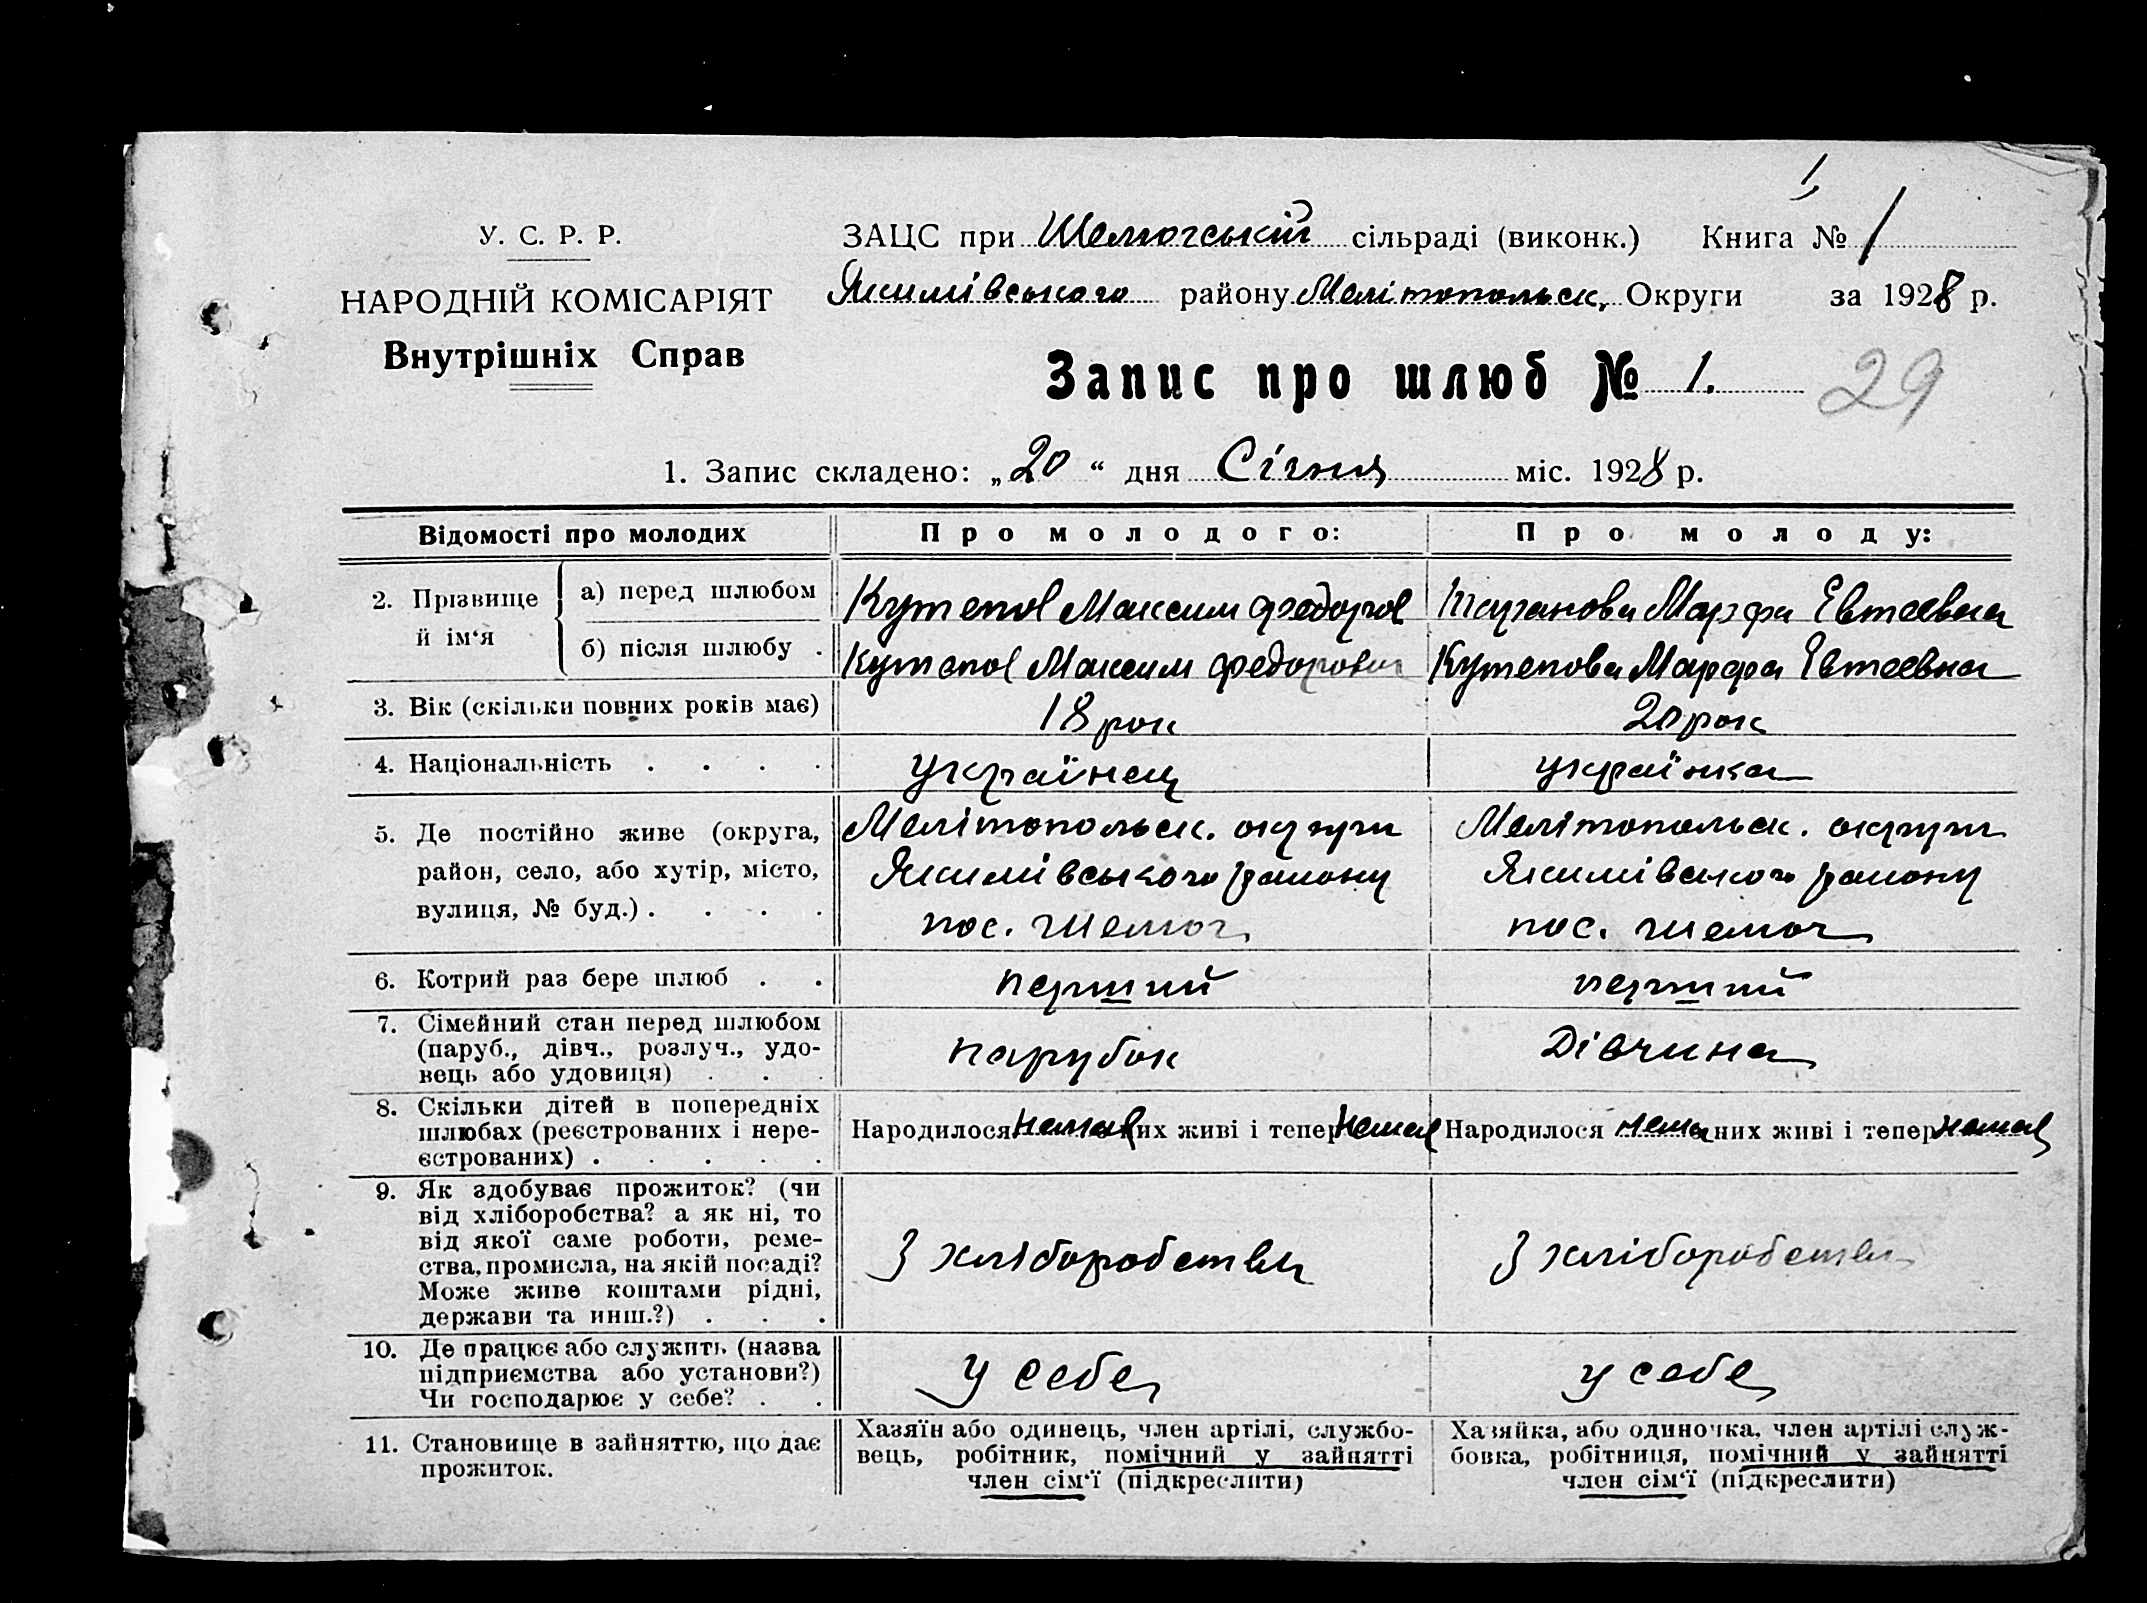 1
У. С. Р. Р.
НАРОДНІЙ КОМІСАРІЯТ
Внутрішніх Справ
ЗАЦС при Шелюгській сільраді (виконк.) Книга № 1
Якимівського району Мелітопольск. Округи за 1928 р.
Запис про шлюб № 1. 29
1. Запис складено: „20“ дня Січня міс. 1928 р.
Відомості про молодих
Про молодого:
Про молоду:
2. Прізвище й ім'я
а) перед шлюбом
Кутепов Максим Федоров
Марфа Евтеевна
б) після шлюбу .
Кутепов Максим Федорович
Кутепова Марфа Евтеевна
3. Вік (скільки повних років має)
18 рок
20 рок
4. Національність . . . .
українец
українка
5. Де постійно живе (округа,
район, село, або хутір, місто,
вулиця, № буд.) . . . .
Мелітопольск. округи
Якимівського району
пос. Шелюг
Мелітопольск. округи
Якимівського району
пос. Шелюг
6. Котрий раз бере шлюб . .
перший
перший
7. Сімейний стан перед шлюбом
(паруб., дівч., розлуч., удо-
вець або удовиця) . . .
парубок
Дівчина
8. Скільки дітей в попередніх
шлюбах (реєстрованих і нере-
єстрованих) . . . . .
Народилося немає них живі і тепер немає
Народилося нема них живі і тепер немає
9. Як здобуває прожиток? (чи
від хліборобства? а як ні, то
від якої саме роботи, реме-
ства, промисла, на якій посаді?
Може живе коштами рідні,
держави та инш.?) . . .
З хліборобства
З хліборобства
10. Де працює або служить (назва
підприємства або установи?)
Чи господарює у себе? . .
у себе
у себе
11. Становище в зайняттю, що дає
прожиток.
Хазяїн або одинець, член артілі, службо-
вець, робітник, помічний у зайнятті
член сім'ї (підкреслити)
Хазяйка, або одиночка, член артілі служ-
бовка, робітниця, помічний у зайнятті
член сім'ї (підкреслити)